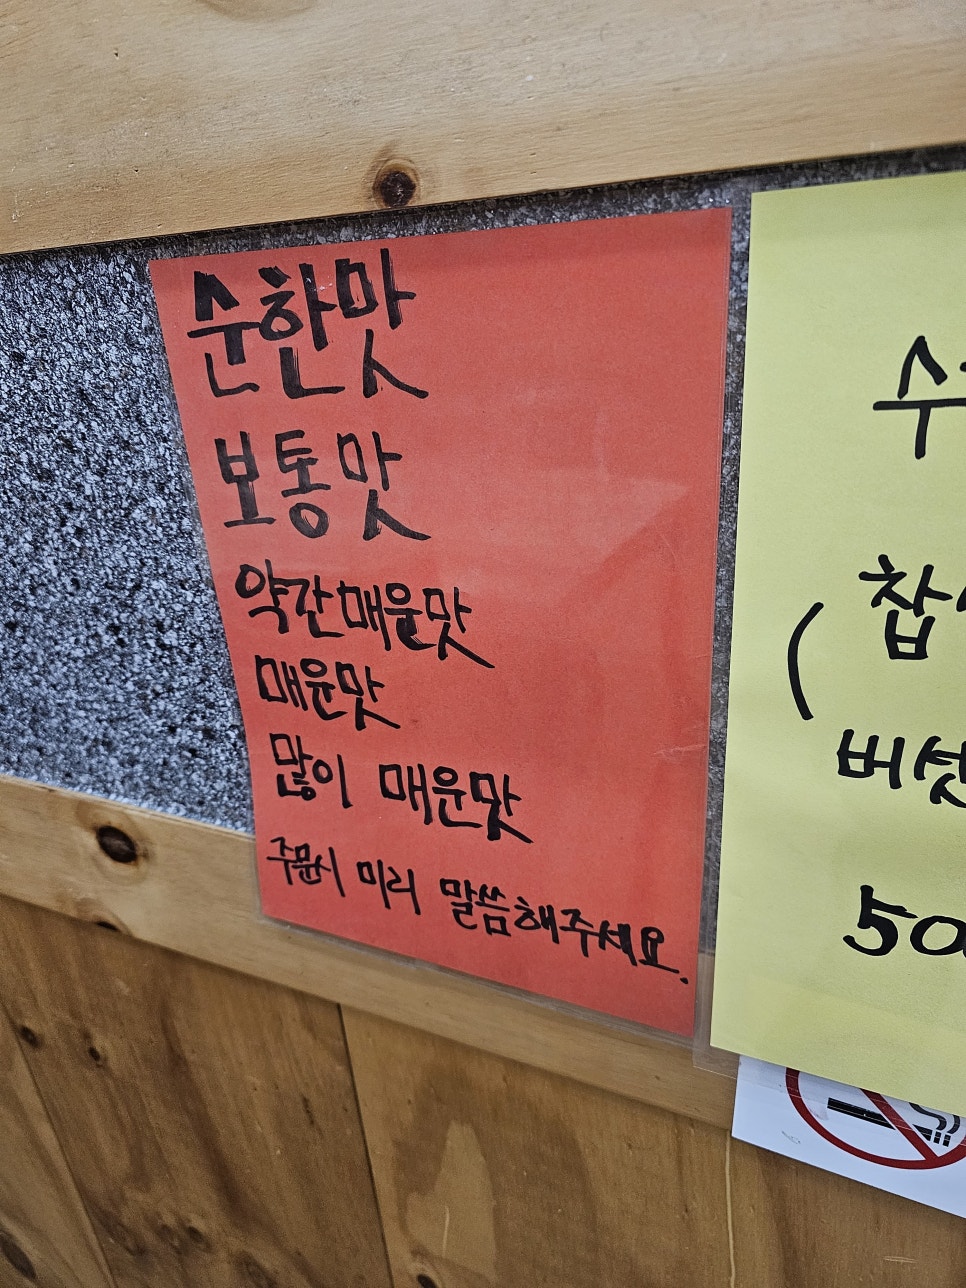 순한맛
보통맛
약간매운맛
매운맛
많이 매운맛
주문시 미리 말씀해주세요.
수
(찹
버섯
50